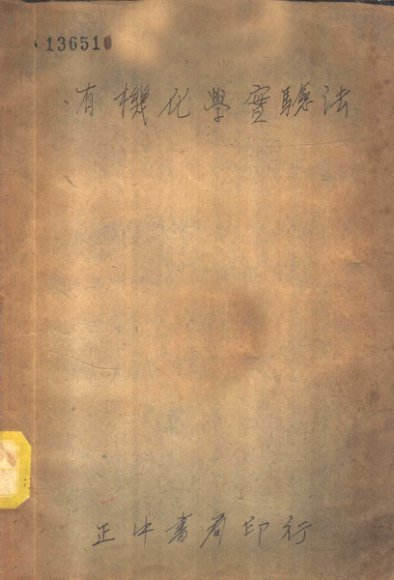 136510
有機化學實驗法
正中書局印行